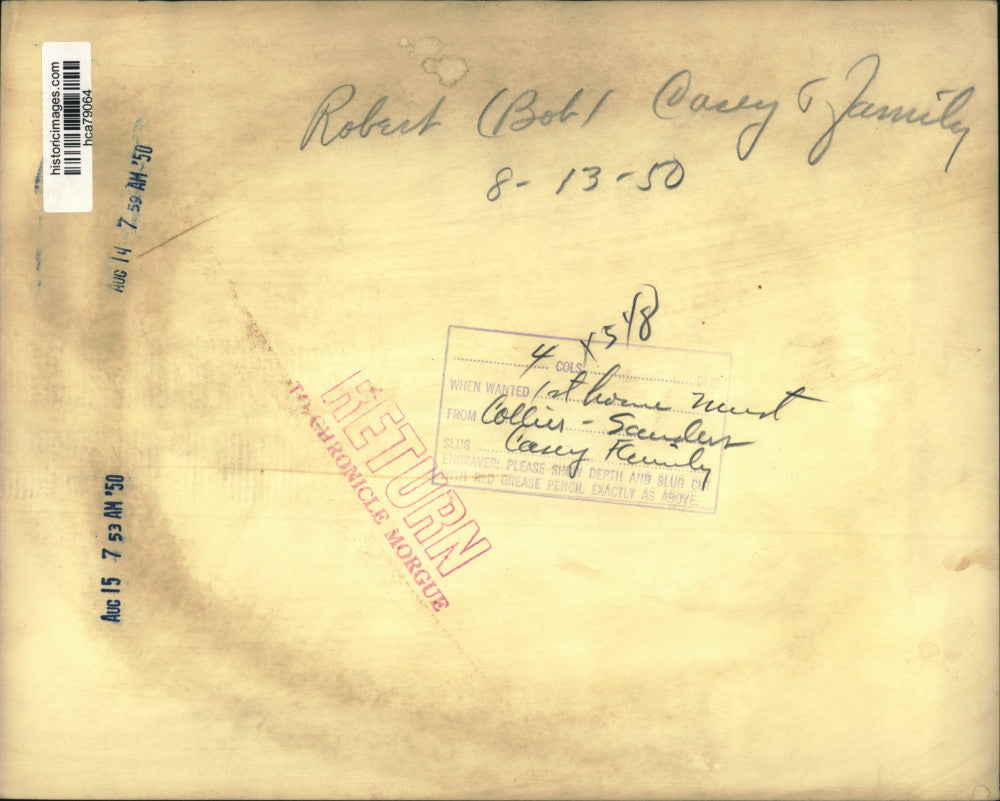 historicimages.com
hca79064
AUG 14 7 59 AM '50
Robert (Bob) Casey & Family
8-13-50
4 COLS X 5 1/8
WHEN WANTED 1st home must
FROM Collier - Sanders
SLUG Casey Family
ENGRAVER: PLEASE SHOW DEPTH AND SLUG OUT
WITH RED GREASE PENCIL EXACTLY AS ABOVE.
RETURN
TO CHRONICLE MORGUE
AUG 15 7 53 AM '50